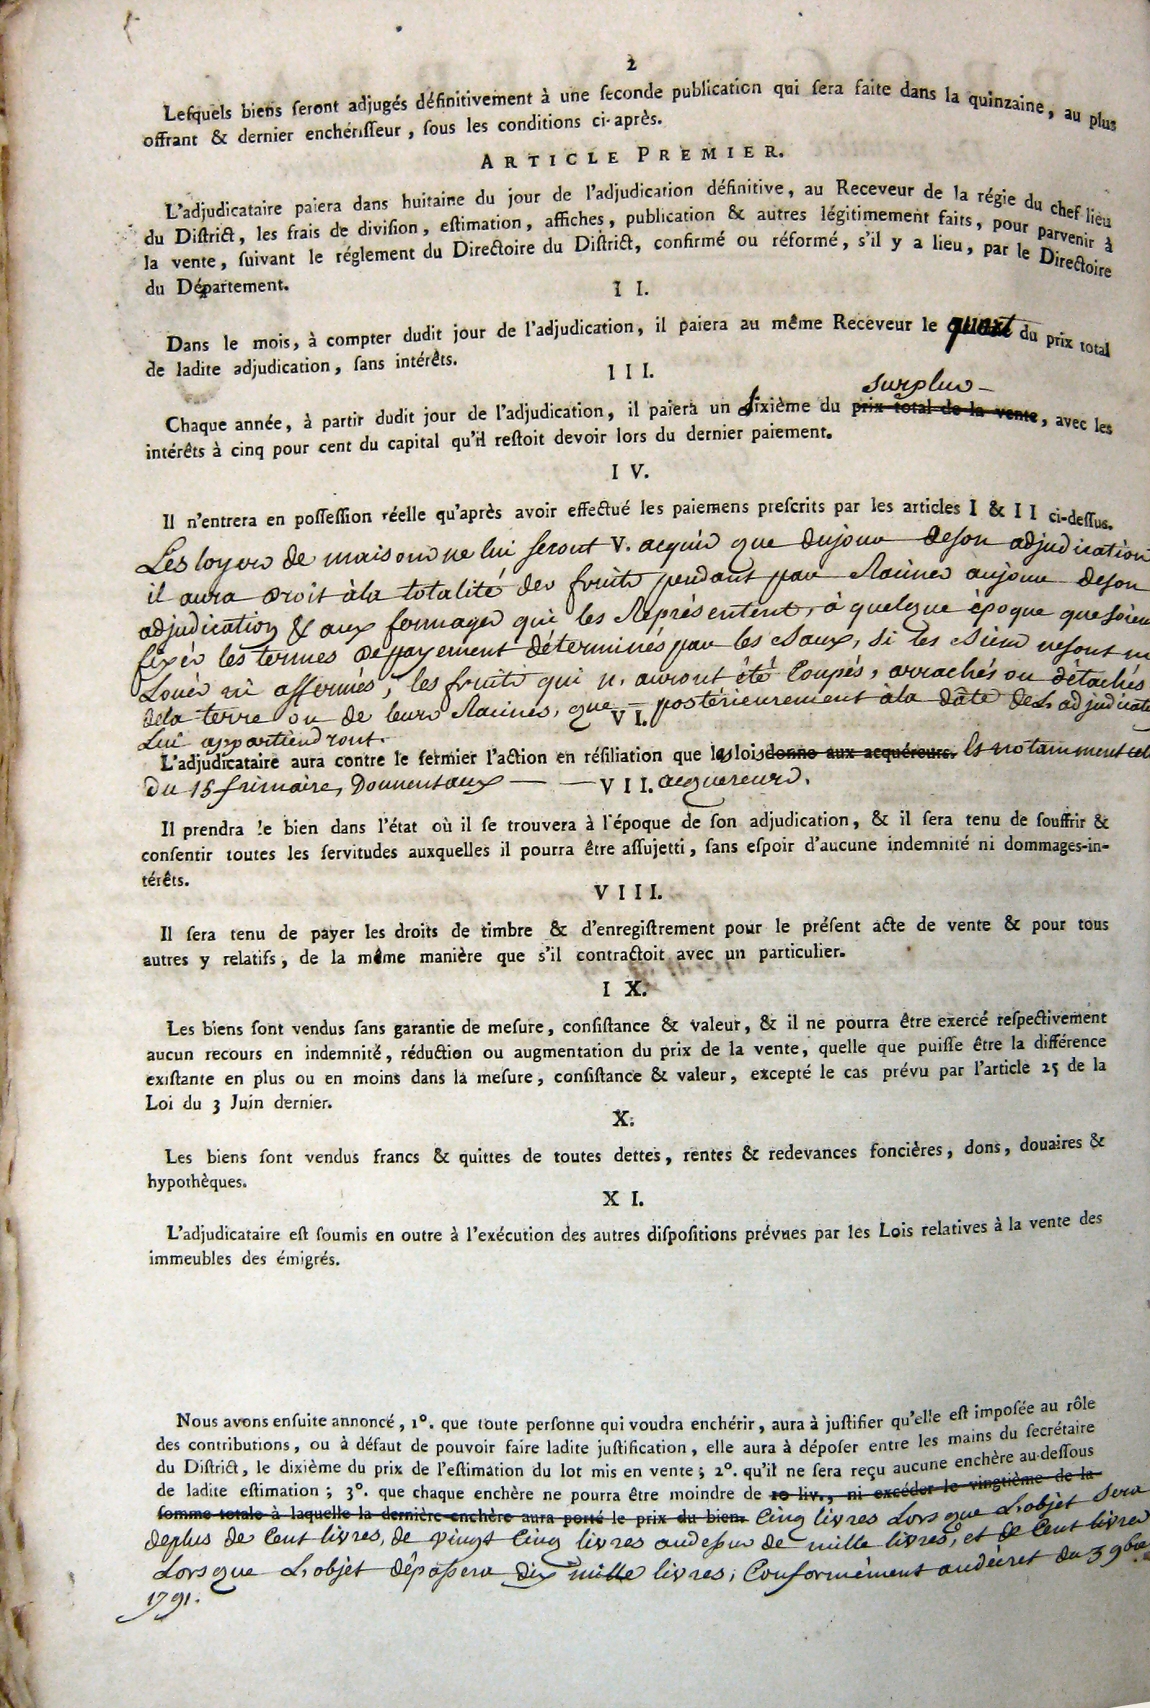 2
Lesquels biens seront adjugés définitivement à une seconde publication qui sera faite dans la quinzaine, au plus
offrant & dernier enchérisseur, sous les conditions ci-après.
ARTICLE PREMIER.
L'adjudicataire paiera dans huitaine du jour de l'adjudication définitive, au Receveur de la régie du chef-lieu
du District, les frais de division, estimation, affiches, publication & autres légitimement faits, pour parvenir à
la vente, suivant le réglement du Directoire du District, confirmé ou réformé, s'il y a lieu, par le Directoire
du Département.
II.
Dans le mois, à compter dudit jour de l'adjudication, il paiera au même Receveur le quart du prix total
de ladite adjudication, sans intérêts.
III.
surplus
Chaque année, à partir dudit jour de l'adjudication, il paiera un sixième du prix total de la vente, avec les
intérêts à cinq pour cent du capital qu'il restoit devoir lors du dernier paiement.
IV.
Il n'entrera en possession réelle qu'après avoir effectué les paiemens prescrits par les articles I & II ci-dessus.
Les loyers de maisons ne lui seront V. acquis que dujour deson adjudication
il aura droit àla totalité des fruits pendant par Racines aujour deson
adjudication & aux fermages qui les Représentent, à quelque époque que soient
fixés les termes de payement déterminés par les Baux, si les biens nesont ni
Loués ni affermés, les fruits qui n'auront été Coupés, arrachés ou détachés
dela terre ou de leurs Racines, que VI. postérieurement àla date deL'adjudicat
Lui appartiendront.
L'adjudicataire aura contre le fermier l'action en résiliation que les lois donne aux acquéreurs. Et notamment cel
du 15 frimaire, Donnent aux VII. acquereurs.
Il prendra le bien dans l'état où il se trouvera à l'époque de son adjudication, & il sera tenu de souffrir &
consentir toutes les servitudes auxquelles il pourra être assujetti, sans espoir d'aucune indemnité ni dommages-in-
térêts.
VIII.
Il sera tenu de payer les droits de timbre & d'enregistrement pour le présent acte de vente & pour tous
autres y relatifs, de la même manière que s'il contractoit avec un particulier.
IX.
Les biens sont vendus sans garantie de mesure, consistance & valeur, & il ne pourra être exercé respectivement
aucun recours en indemnité, réduction ou augmentation du prix de la vente, quelle que puisse être la différence
existante en plus ou en moins dans la mesure, consistance & valeur, excepté le cas prévu par l'article 25 de la
Loi du 3 Juin dernier.
X.
Les biens sont vendus francs & quittes de toutes dettes, rentes & redevances foncières, dons, douaires &
hypothèques.
XI.
L'adjudicataire est soumis en outre à l'exécution des autres dispositions prévues par les Lois relatives à la vente des
immeubles des émigrés.
Nous avons ensuite annoncé, 1°. que toute personne qui voudra enchérir, aura à justifier qu'elle est imposée au rôle
des contributions, ou à défaut de pouvoir faire ladite justification, elle aura à déposer entre les mains du secrétaire
du District, le dixième du prix de l'estimation du lot mis en vente; 2°. qu'il ne sera reçu aucune enchère au-dessous
de ladite estimation; 3°. que chaque enchère ne pourra être moindre de 10 liv., ni excéder le vingtième de la
somme totale à laquelle la dernière enchère aura porté le prix du bien. Cinq livres Lorsque L'objet sera
deplus de Cent livres, de vingt Cinq livres audessus de mille livres, et de Cent livres
Lorsque L'objet dépassera dix mille livres, Conformément audécret du 3 9bre
1791.